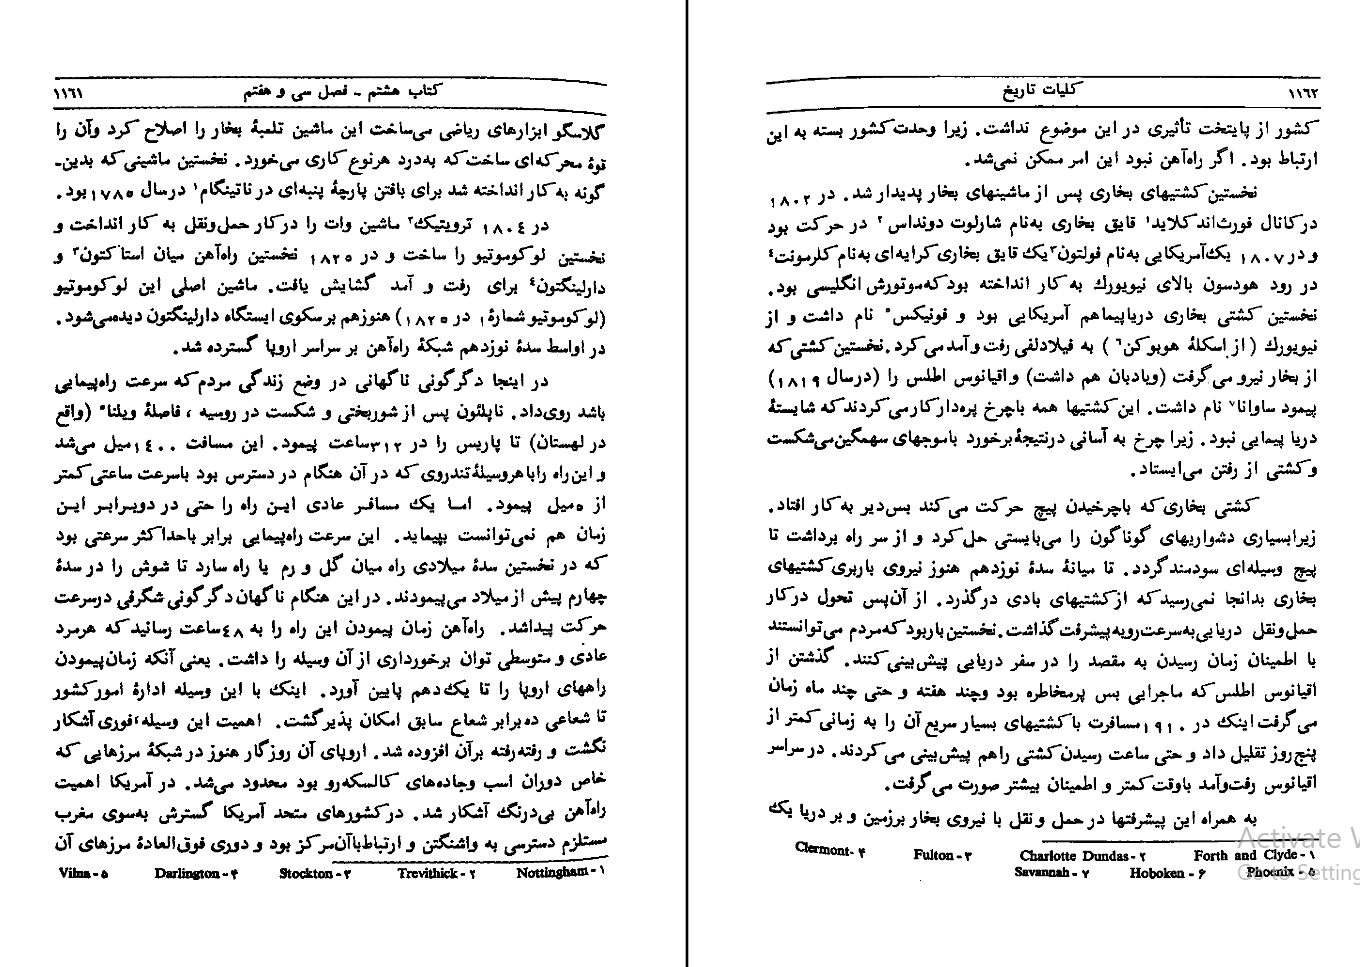 کتاب هشتم ـ فصل سی و هفتم ۱۱٦۱
گلاسگو ابزارهای ریاضی می‌ساخت این ماشین تلمبهٔ بخار را اصلاح کرد وآن را
توهٔ محرکه‌ای ساخت‌که به‌درد هرنوع کاری می‌خورد. نخستین ماشینی‌که بدین‌ـ
گونه به‌کار انداخته شد برای بافتن پارچهٔ پنبه‌ای در ناتینگام۱ درسال ۱۷۸۵بود.
در ۱۸۰٤ ترویتیک۲ ماشین وات را درکار حمل‌ونقل به کار انداخت و
نخستین لوکوموتیو را ساخت و در ۱۸۲۵ نخستین راه‌آهن میان استاکتون۳ و
دارلینگتون٤ برای رفت و آمد گشایش یافت. ماشین اصلی این لوکوموتیو
(لوکوموتیو شمارهٔ۱ در ۱۸۲۵) هنوزهم برسکوی ایستگاه دارلینگتون دیده‌می‌شود.
در اواسط سدهٔ نوزدهم شبکهٔ راه‌آهن بر سراسر اروپا گسترده شد.
در اینجا دگرگونی ناگهانی در وضع زندگی مردم‌که سرعت راه‌پیمایی
باشد روی‌داد. ناپلئون پس از شوربختی و شکست در روسیه ، فاصلهٔ ویلنا۵ (واقع
در لهستان) تا پاریس را در ۳۱۲ساعت پیمود. این مسافت ۱٤۰۰میل می‌شد
و این‌راه راباهروسیلهٔ‌تندروی که در آن هنگام در دسترس بود باسرعت ساعتی‌کمتر
از ۵میل پیمود. اما یک مسافر عادی این راه را حتی در دوبرابر این
زمان هم نمی‌توانست بپیماید. این سرعت راه‌پیمایی برابر باحداکثر سرعتی بود
که در نخستین سدهٔ میلادی راه میان گل و رم یا راه سارد تا شوش را در سدهٔ
چهارم پیش از میلاد می‌پیمودند. در این هنگام ناگهان دگرگونی شگرفی درسرعت
حرکت پیداشد. راه‌آهن زمان پیمودن این راه را به ٤۸ساعت رسانید که هرمرد
عادی و متوسطی توان برخورداری از آن وسیله را داشت. یعنی آنکه زمان‌پیمودن
راههای اروپا را تا یک‌دهم پایین آورد. اینک با این وسیله ادارهٔ امورکشور
تا شعاعی ده‌برابر شعاع سابق امکان پذیرگشت. اهمیت این وسیله،فوری آشکار
نگشت و رفته‌رفته برآن افزوده شد. اروپای آن روزگار هنوز درشبکهٔ مرزهایی که
خاص دوران اسب وجاده‌های کالسکه‌رو بود محدود می‌شد. در آمریکا اهمیت
راه‌آهن بی‌درنگ آشکار شد. درکشورهای متحد آمریکا گسترش به‌سوی مغرب
مستلزم دسترسی به واشنگتن و ارتباط‌باآن‌مرکز بود و دوری فوق‌العادهٔ مرزهای آن
۱-Nottingham ۲-Trevithick ۳-Stockton ۴-Darlington ۵-Vilna
۱۱٦۲ کلیات تاریخ
کشور از پایتخت تأثیری در این موضوع نداشت. زیرا وحدت‌کشور بسته به این
ارتباط بود. اگر راه‌آهن نبود این امر ممکن نمی‌شد.
نخستین‌کشتیهای بخاری پس از ماشینهای بخار پدیدار شد. در ۱۸۰۲
درکانال فورث‌اندکلاید۱ قایق بخاری به‌نام شارلوت دونداس۲ در حرکت بود
و در ۱۸۰۷ یک‌آمریکایی به‌نام فولتون۳یک قایق بخاری کرایه‌ای به‌نام کلرمونت٤
در رود هودسون بالای نیویورك به کار انداخته بود که‌موتورش انگلیسی بود.
نخستین کشتی بخاری دریاپیماهم آمریکایی بود و فونیکس۵ نام داشت و از
نیویورك (از اسکلهٔ هوبوکن٦) به فیلادلفی رفت و آمد می‌کرد.نخستین کشتی‌که
از بخار نیرو می‌گرفت (وبادبان هم داشت) واقیانوس اطلس را (درسال ۱۸۱۹)
پیمود ساوانا۷ نام داشت. این‌کشتیها همه باچرخ پره‌دارکار‌می‌کردندکه شایستهٔ
دریا پیمایی نبود. زیرا چرخ به آسانی درنتیجهٔ‌برخورد باموجهای سهمگین‌می‌شکست
وکشتی از رفتن می‌ایستاد.
کشتی بخاری‌که باچرخیدن پیچ حرکت می‌کند بس‌دیر به‌کار افتاد.
زیرابسیاری دشواریهای گوناگون را می‌بایستی حل‌کرد و از سر راه برداشت تا
پیچ وسیله‌ای سودمندگردد. تا میانهٔ سدهٔ نوزدهم هنوز نیروی باربری‌کشتیهای
بخاری بدانجا نمی‌رسیدکه ازکشتیهای بادی درگذرد. از آن‌پس تحول درکار
حمل‌ونقل دریایی‌به‌سرعت‌روبه‌پیشرفت‌گذاشت.نخستین‌باربودکه‌مردم می‌توانستند
با اطمینان زمان رسیدن به مقصد را در سفر دریایی پیش‌بینی‌کنند. گذشتن از
اقیانوس اطلس‌که ماجرایی بس پرمخاطره بود وچند هفته و حتی چند ماه زمان
می‌گرفت اینک در ۱۹۱۰مسافرت باکشتیهای بسیار سریع آن را به زمانی‌کمتر از
پنج‌روز تقلیل داد و حتی ساعت رسیدن‌کشتی راهم پیش‌بینی می‌کردند. در سراسر
اقیانوس رفت‌وآمد باوقت‌کمتر و اطمینان بیشتر صورت می‌گرفت.
به همراه این پیشرفتها در حمل ونقل با نیروی بخار برزمین و بر دریا یک
۱-Forth and Clyde ۲-Charlotte Dundas ۳-Fulton ۴-Clermont
۵-Phoenix ۶-Hoboken ۷-Savannah
Activate W
Go to Setting